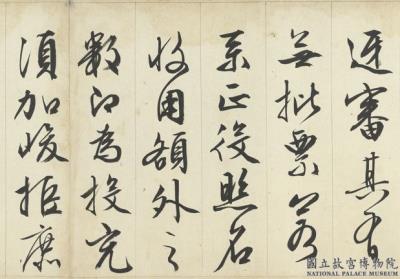 逐審其有
無批票若
系正役照名
收用額外之
數即為投充
須加峻拒庶
國立故宮博物院
NATIONAL PALACE MUSEUM